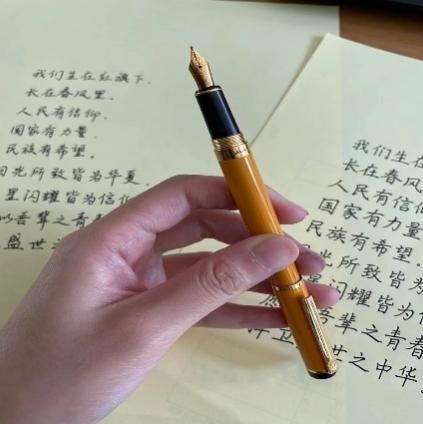 我们生在红旗下.
长在春风里.
人民有信仰.
国家有力量.
民族有希望.
目光所致皆为华夏.
星闪耀皆为信仰
以吾辈之青春
盛世之
我们生在
长在春风
人民有信仰
国家有力量
民族有希望.
光所致皆为
星闪耀皆为信
愿 吾辈之青春
捍卫 世之中华.